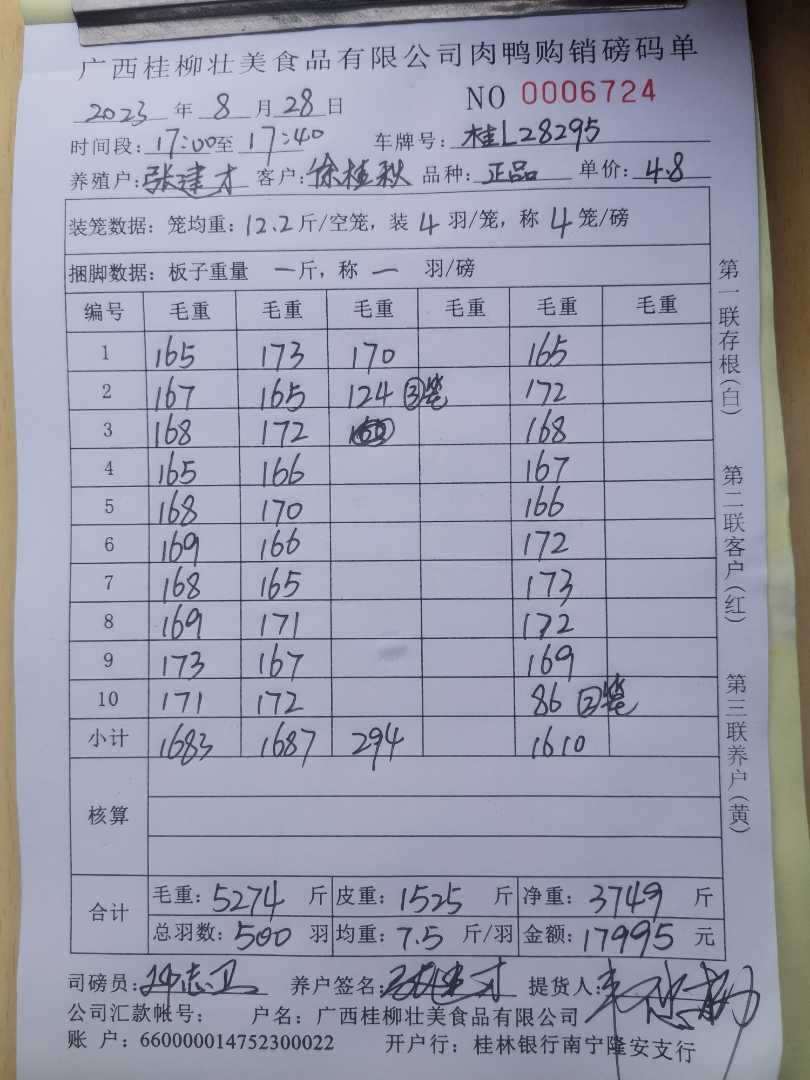 广西桂柳壮美食品有限公司肉鸭购销磅码单
2023 年 8 月 28 日 NO 0006724
时间段: 17:00 至 17:40 车牌号: 桂L28295
养殖户: 张建才 客户: 徐桂秋 品种: 正品 单价: 4.8
装笼数据: 笼均重: 12.2 斤/空笼, 装 4 羽/笼, 称 4 笼/磅
捆脚数据: 板子重量 一 斤, 称 一 羽/磅
编号 毛重 毛重 毛重 毛重 毛重 毛重
1 165 173 170 165
2 167 165 124 ③笼 172
3 168 172 168
4 165 166 167
5 168 170 166
6 169 166 172
7 168 165 173
8 169 171 172
9 173 167 169
10 171 172 86 ②笼
小计 1683 1687 294 1610
核算
合计 毛重: 5274 斤 皮重: 1525 斤 净重: 3749 斤
总羽数: 500 羽 均重: 7.5 斤/羽 金额: 17995 元
司磅员: 养户签名: 张建才 提货人:
公司汇款帐号: 户名: 广西桂柳壮美食品有限公司
账 户: 660000014752300022 开户行: 桂林银行南宁隆安支行
第一联存根(白)
第二联客户(红)
第三联养户(黄)